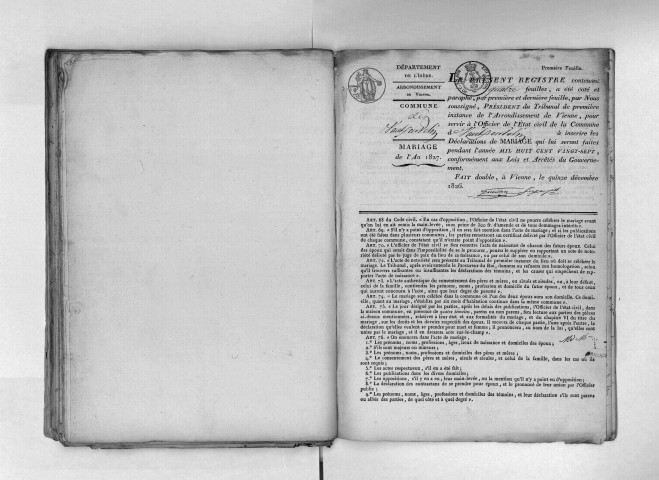 DÉPARTEMENT
DE L'ISÈRE.
ARRONDISSEMENT
DE VIENNE.
COMMUNE
MARIAGE
de l'An 1827.
Première Feuille.
LE PRÉSENT REGISTRE contenant
quatre feuilles, a été coté et
paraphé, par première et dernière feuille, par Nous
soussigné, PRÉSIDENT du Tribunal de première
instance de l'Arrondissement de Vienne, pour
servir à l'Officier de l'État civil de la Commune
à inscrire les
Déclarations de MARIAGE qui lui seront faites
pendant l'année MIL HUIT CENT VINGT-SEPT,
conformément aux Lois et Arrêtés du Gouverne-
ment.
FAIT double, à Vienne, le quinze décembre
1826.
ART. 68 du Code civil. « En cas d'opposition, l'Officier de l'état civil ne pourra célébrer le mariage avant
qu'on lui en ait remis la main-levée, sous peine de 300 fr. d'amende et de tous dommages-intérêts ».
ART. 69. « S'il n'y a point d'opposition, il en sera fait mention dans l'acte de mariage; et si les publications
ont été faites dans plusieurs communes, les parties remettront un certificat délivré par l'Officier de l'état civil
de chaque commune, constatant qu'il n'existe point d'opposition ».
ART. 70. « L'Officier de l'état civil se fera remettre l'acte de naissance de chacun des futurs époux. Celui
des époux qui serait dans l'impossibilité de se le procurer, pourra le suppléer en rapportant un acte de noto-
riété délivré par le juge de paix du lieu de sa naissance, ou par celui de son domicile ».
ART. 72. « L'acte de notoriété sera présenté au Tribunal de première instance du lieu où doit se célébrer le
mariage. Le Tribunal, après avoir entendu le Procureur du Roi, donnera ou refusera son homologation, selon
qu'il trouvera suffisantes ou insuffisantes les déclarations des témoins, et les causes qui empêchent de rap-
porter l'acte de naissance ».
ART. 73. « L'acte authentique du consentement des pères et mères, ou aïeuls et aïeules, ou, à leur défaut,
celui de la famille, contiendra les prénoms, noms, profession et domicile du futur époux, et de tous ceux
qui auront concouru à l'acte, ainsi que leur degré de parenté ».
ART. 74. « Le mariage sera célébré dans la commune où l'un des deux époux aura son domicile. Ce domi-
cile, quant au mariage, s'établira par six mois d'habitation continue dans la même commune ».
ART. 75. « Le jour désigné par les parties, après les délais des publications, l'Officier de l'état civil, dans
la maison commune, en présence de quatre témoins, parens ou non parens, fera lecture aux parties des pièces
ci-dessus mentionnées, relatives à leur état et aux formalités du mariage, et du chapitre VI du titre du
mariage, sur les droits et les devoirs respectifs des époux. Il recevra de chaque partie, l'une après l'autre, la
déclaration qu'elles veulent se prendre pour mari et femme; il prononcera, au nom de la loi, qu'elles sont
unies par le mariage, et il en dressera acte sur-le-champ ».
ART. 76. « On énoncera dans l'acte de mariage,
1.° Les prénoms, noms, professions, âges, lieux de naissance et domiciles des époux;
2.° S'ils sont majeurs ou mineurs;
3.° Les prénoms, noms, professions et domiciles des pères et mères;
4.° Le consentement des pères et mères, aïeuls et aïeules, et celui de la famille, dans les cas où ils
sont requis;
5.° Les actes respectueux, s'il en a été fait;
6.° Les publications dans les divers domiciles;
7.° Les oppositions, s'il y en a eu, leur main-levée, ou la mention qu'il n'y a point eu d'opposition;
8.° La déclaration des contractans de se prendre pour époux, et le prononcé de leur union par l'Officier
public;
9.° Les prénoms, noms, âges, professions et domiciles des témoins, et leur déclaration s'ils sont parens
ou alliés des parties, de quel côté et à quel degré ».